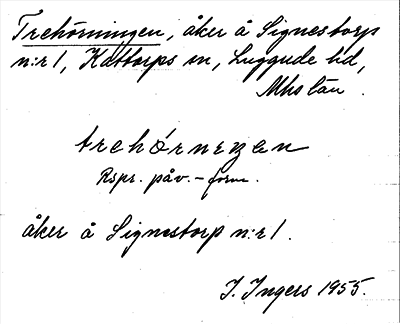 Trehörningen, åker å Signestorp
n:r 1, Kattarps sn, Luggude hd,
Mhs län.
trehórnezen
Rspr. påv.-form.
åker å Signestorp n:r 1.
I. Ingers 1955.